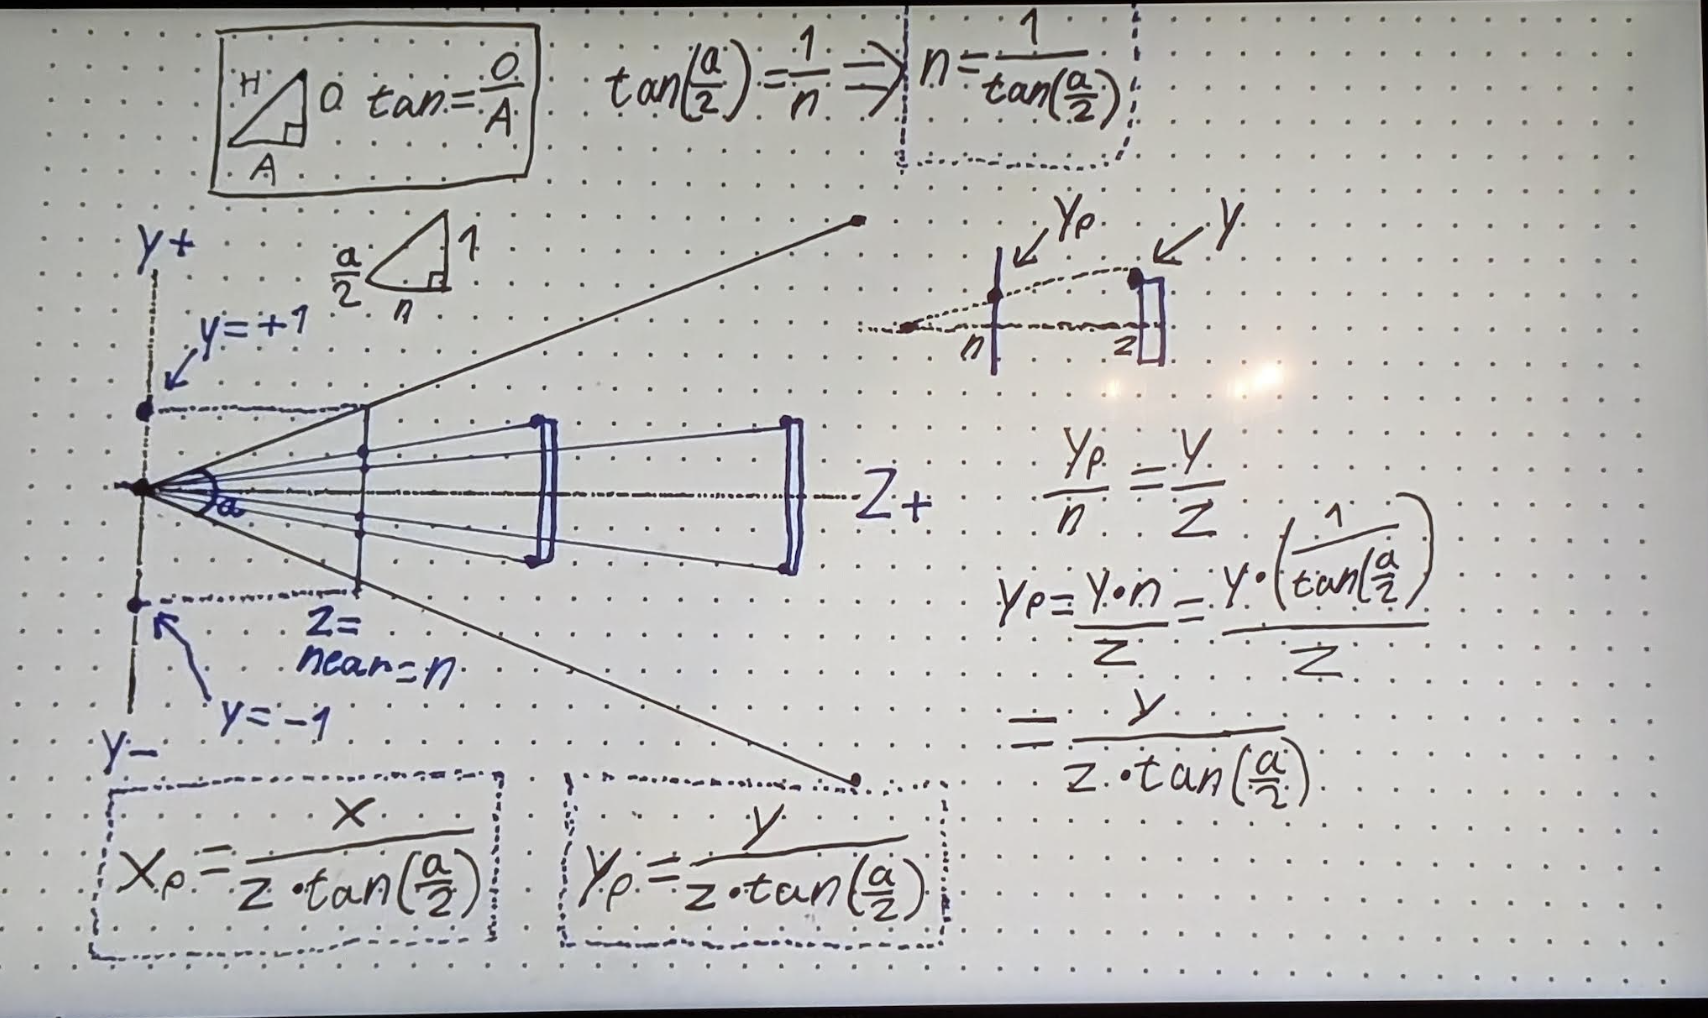 H O tan = O/A
A
tan(a/2) = 1/n ⇒ n = 1/tan(a/2)
y+
a/2 1
n
y=+1
a
Z+
z=
near=n
y=-1
y-
yp y
n z
yp/n = y/z
yp = y•n/z = y•(1/tan(a/2))/z
= y/(z•tan(a/2))
xp = x/(z•tan(a/2))
yp = y/(z•tan(a/2))